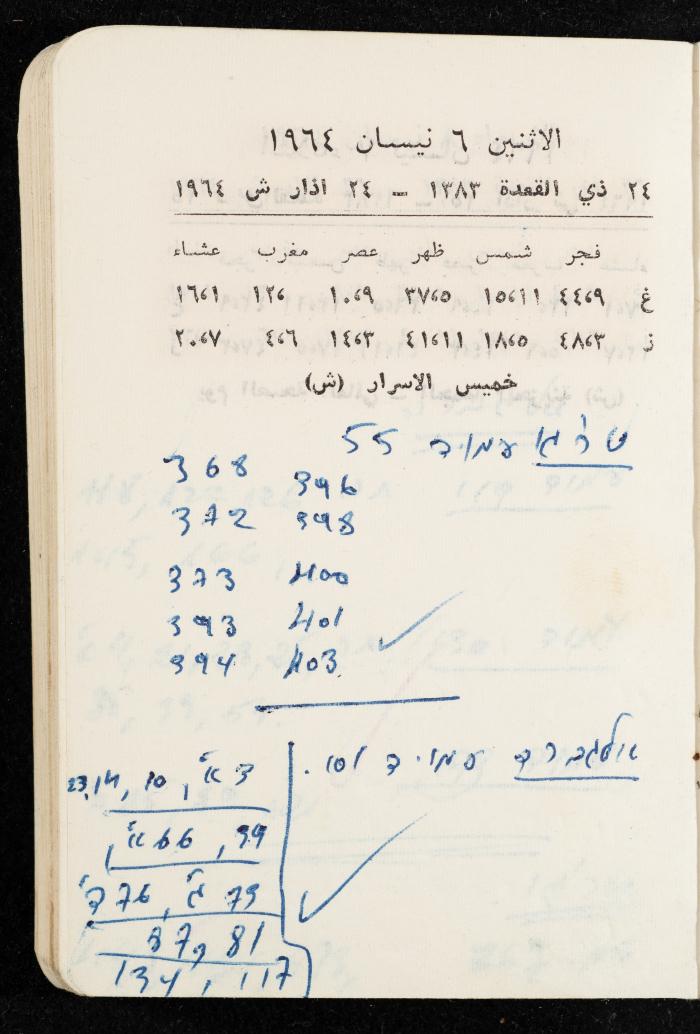 الاثنين ٦ نيسان ١٩٦٤
٢٤ ذي القعدة ١٣٨٣ – ٢٤ اذار ش ١٩٦٤
فجر شمس ظهر عصر مغرب عشاء
غ ٩،٤٤ ١١،١٥ ٥،٣٧ ٩،١٠ ١٢،٠ ١،١٦
ز ٣،٤٨ ٥،١٨ ١١،٤١ ٣،١٤ ٦،٤ ٧،٢٠
خميس الاسرار (ش)
עמוד 55
368 396
372 398
373 400
393 401
394 403
אלגברה עמוד
10, 14, 23
39, 66 א',
79 ג', 76 ד'
81, 87
117, 134